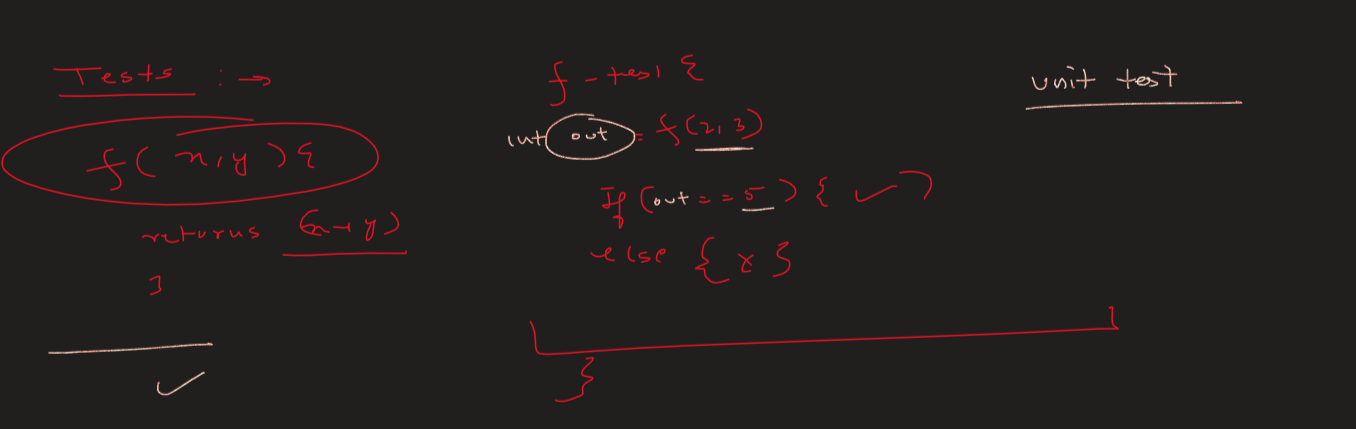 Tests : →
f(x,y){
returns (x+y)
}
f-test {
int out = f(2,3)
If (out == 5) { ✓ }
else { x }
}
unit test